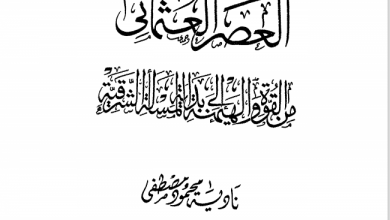 العصر العثماني
من القوة والهيمنة إلى بداية المسألة الشرقية
نادية محمود مصطفى